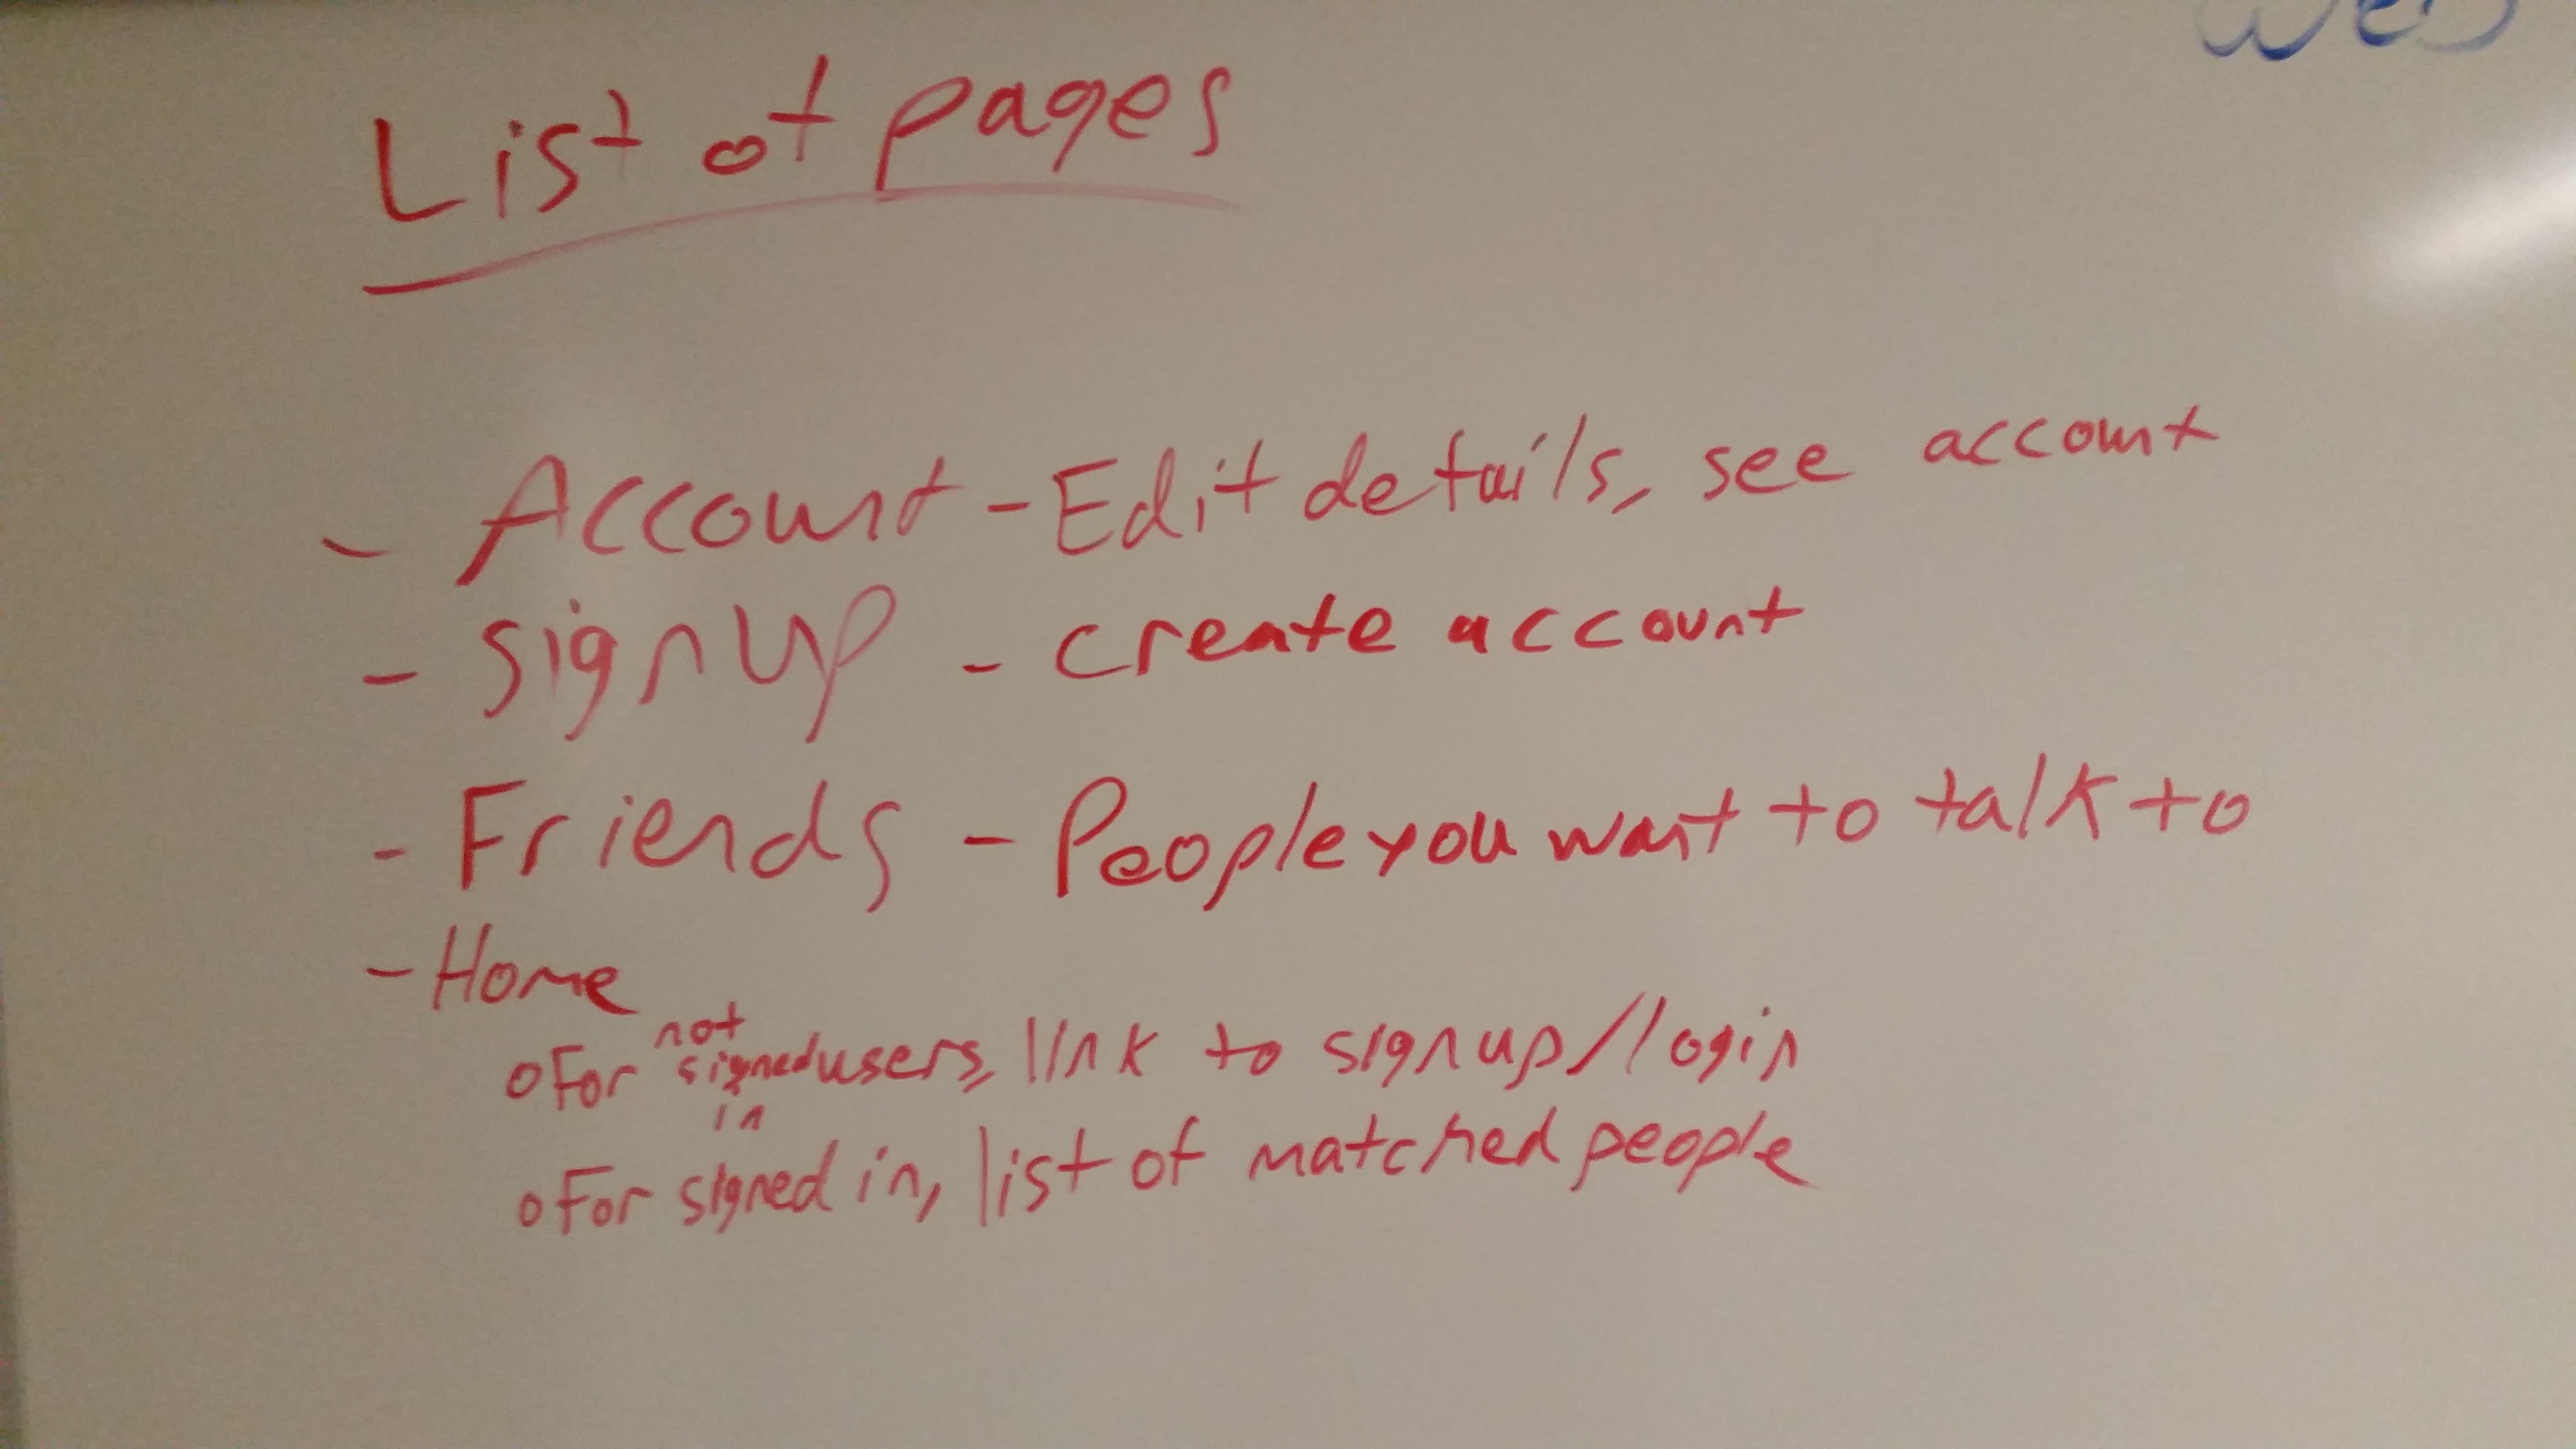 List of pages
- Account - Edit details, see account
- signup - create account
- Friends - People you want to talk to
- Home
o For not signed in users, link to signup/login
o For signed in, list of matched people